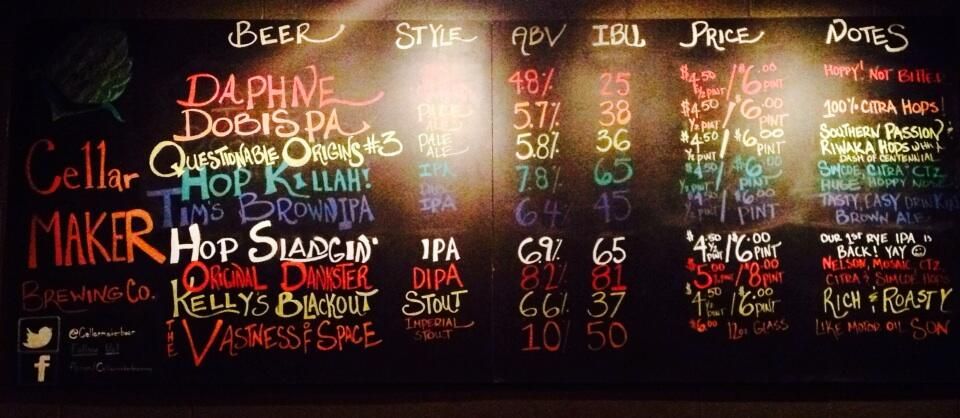 BEER STYLE ABV IBU PRICE NOTES
DAPHNE 4.8% 25 $4.50 ½ PINT / $6.00 PINT HOPPY! NOT BITTER
DOBIS PA PALE ALE 5.7% 38 $4.50 ½ PINT / $6.00 PINT 100% CITRA HOPS!
QUESTIONABLE ORIGINS #3 PALE ALE 5.8% 36 $4.50 ½ PINT / $6.00 PINT SOUTHERN PASSION
RIWAKA HODS WITH A
DASH OF CENTENNIAL
HOP KILLAH! IPA 7.8% 65 $4.50 ½ PINT / $6 PINT SIMCOE, CITRA CTZ
HUGE HOPPY NOSE
TIM'S BROWN IPA IPA 6.4% 45 $4.50 ½ PINT / $6 PINT TASTY, EASY DRINKIN
BROWN ALE
HOP SLADGIN' IPA 6.9% 65 $4.50 ½ PINT / $6.00 PINT OUR 1ST RYE IPA IS
BACK! YAY
ORIGINAL DANKSTER DIPA 8.2% 81 $5.00 / $8.00 PINT NELSON, MOSAIC, CTZ
CITRA & SIMCOE HOPS
KELLY'S BLACKOUT STOUT 6.6% 37 $4.50 ½ PINT / $6.00 PINT RICH & ROASTY
THE VASTNESS OF SPACE IMPERIAL STOUT 10% 50 $6.00 12oz GLASS LIKE MOTOR OIL SON
Cellar
MAKER
BREWING CO.
@Cellarmakerbeer
Follow Us!